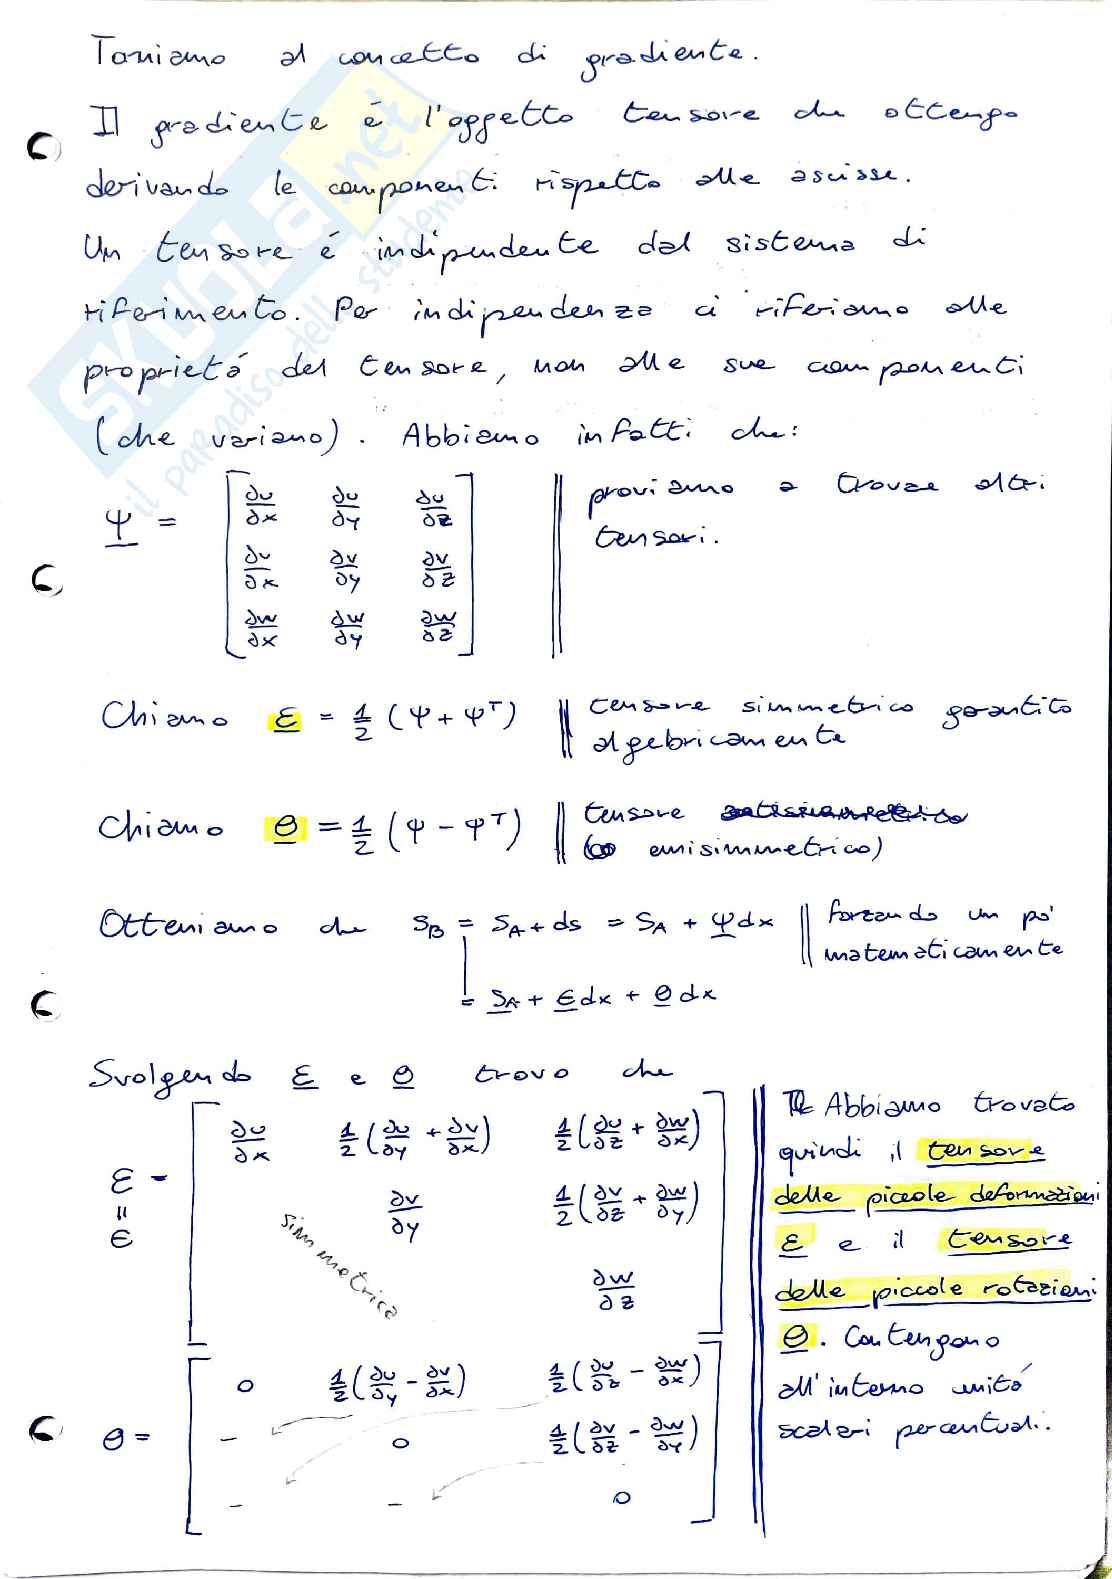 Torniamo al concetto di gradiente.
Il gradiente é l'oggetto tensore che ottengo
derivando le componenti rispetto alle ascisse.
Un tensore é indipendente dal sistema di
riferimento. Per indipendenza ci riferiamo alle
proprietá del tensore, non alle sue componenti
(che variano). Abbiamo infatti che:
Ψ = [ ∂u/∂x ∂u/∂y ∂u/∂z
∂v/∂x ∂v/∂y ∂v/∂z
∂w/∂x ∂w/∂y ∂w/∂z ]
proviamo a trovare altri
tensori.
Chiamo ε = 1/2 (Ψ + Ψᵀ) || tensore simmetrico garantito
algebricamente
Chiamo Θ = 1/2 (Ψ - Ψᵀ) || tensore
(o emisimmetrico)
Otteniamo che S_B = S_A + ds = S_A + Ψdx || forzando un pò
matematicamente
= S_A + Єdx + Θdx
Svolgendo ε e Θ trovo che
ε = [ ∂u/∂x 1/2(∂u/∂y + ∂v/∂x) 1/2(∂u/∂z + ∂w/∂x)
∂v/∂y 1/2(∂v/∂z + ∂w/∂y)
simmetrica
∂w/∂z ]
=
Є
Θ = [ 0 1/2(∂u/∂y - ∂v/∂x) 1/2(∂u/∂z - ∂w/∂x)
- 0 1/2(∂v/∂z - ∂w/∂y)
- - 0 ]
Abbiamo trovato
quindi il tensore
delle piccole deformazioni
ε e il tensore
delle piccole rotazioni
Θ. Contengono
all'interno unitá
scalari percentuali.
SKUOLA.net
il paradiso dello studente